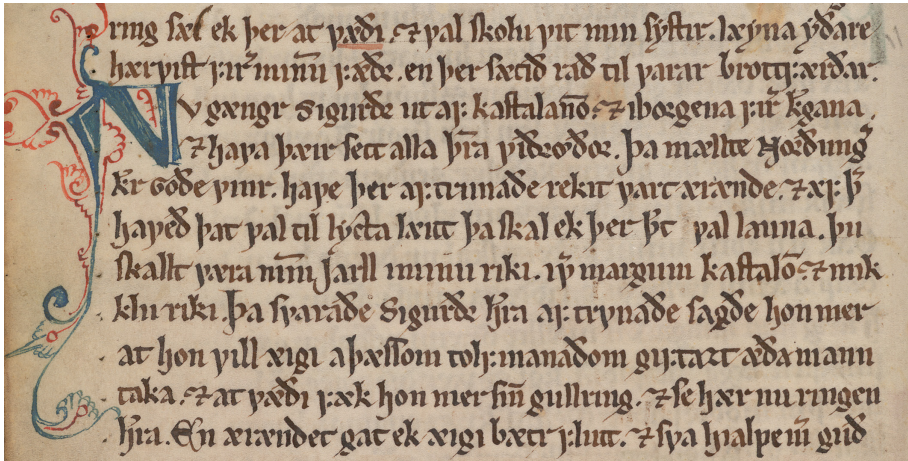 ring sæl ek þer at væði. ⁊ val skolu vit min systir. læyna yðare
hærvist firir minum fæðr. en þer sæcið rað til varar brottfærðar.
NV gængr Sigurðr ut af kastalanō. ⁊ i borgena firir kgana.
⁊ hava þæir sett alla þra viðrœðor. þa mællte Norðungr
kr goðe vinr. have þer af trunaðe rekit vart ærænde. ⁊ æf þr
haveð þat val til lycta læitt þa skal ek þer þt val launa. þu
skallt væra mīn jarll i minu riki. ifir margum kastalō. ⁊ mik
klu riki þa svaraðe Sigurðr hra af trynaðe sagðe hon mer
at hon vill æigi a þæssom tolf manaðom giftazt æða mann
taka. ⁊ at væði fæk hon mer sin gullring. ⁊ se hær nu ringen
hra. En ærændet gat ek æigi bætr flutt. ⁊ sva hialpe mr guð